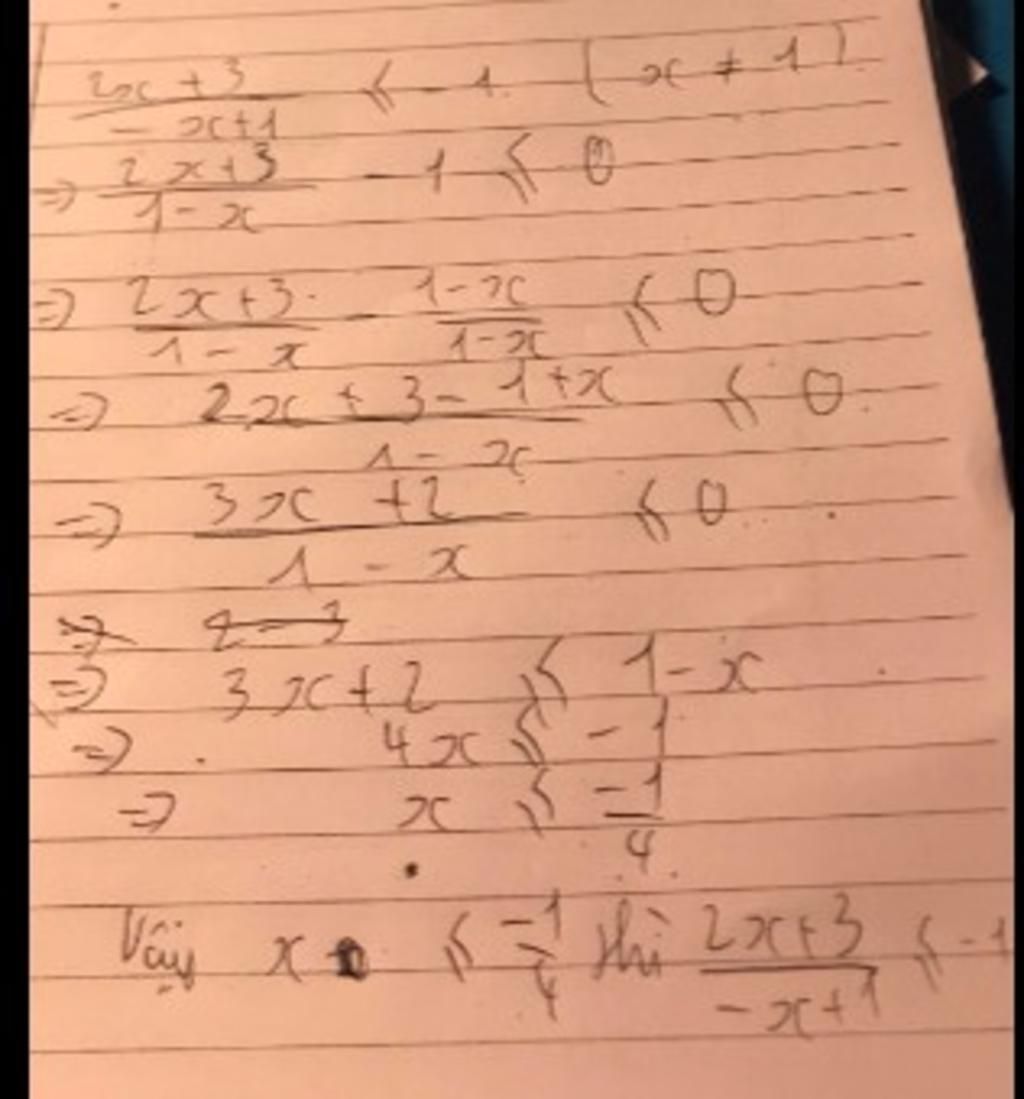 \frac{2x+3}{-x+1} ⩽ -1. (x ≠ 1)
=> \frac{2x+3}{1-x} - 1 ⩽ 0
=> \frac{2x+3}{1-x} - \frac{1-x}{1-x} ⩽ 0
=> \frac{2x+3-1+x}{1-x} ⩽ 0
=> \frac{3x+2}{1-x} ⩽ 0
=> 3x+2 ⩽ 1-x
=> 4x ⩽ -1
=> x ⩽ \frac{-1}{4}
Vậy x ⩽ \frac{-1}{4} thì \frac{2x+3}{-x+1} ⩽ -1